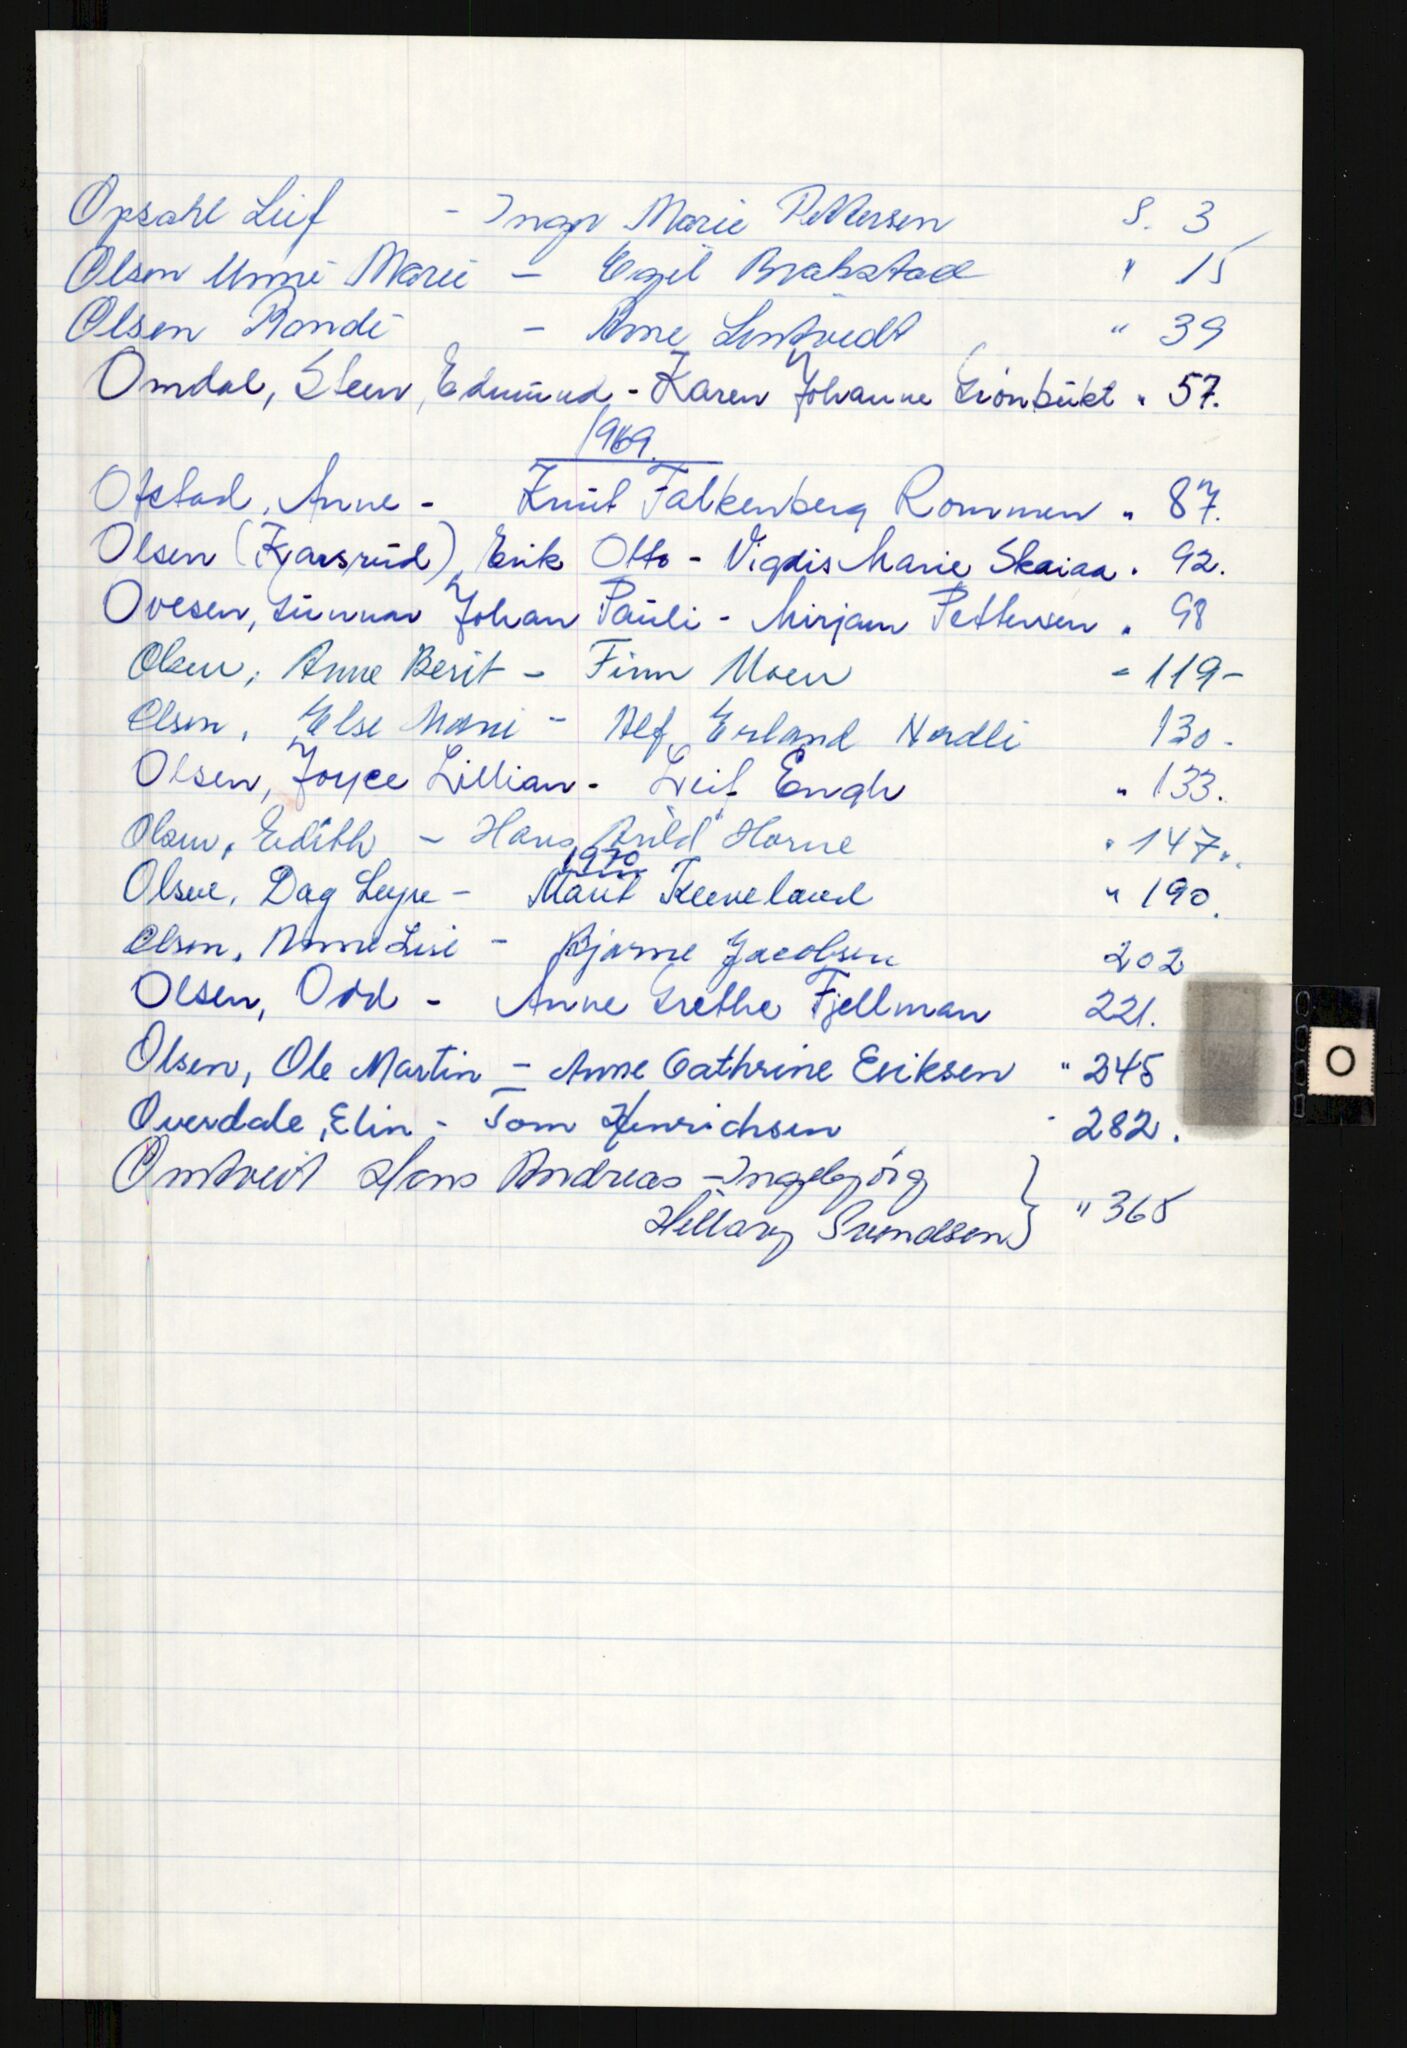 Opsahl Leif - Inger Marie Pettersen S. 3
Olsen Unni Marie - Egil Brakstad " 15
Olsen Randi - Arne Lintvedt " 39
Omdal, Steen, Edmund - Karen Johanne Grønbukt " 57.
1969.
Ofstad, Anne - Knut Falkenberg Rommen " 87.
Olsen (Kjærsrud), Erik Otto - Vigdis Marie Skaiaa " 92.
Ovesen, Gunnar Johan Pauli - Mirjam Pettersen " 98
Olsen, Anne Berit - Finn Moen " 119 -
Olsen, Else Marie - Alf Erland Nordli 130 -
Olsen, Joyce Lillian - Leif Engh " 133.
Olsen, Edith - Hans Arild Horne " 147 "
1970
Olsen, Dag - Marit Kleveland " 190.
Olsen, Anne Lise - Bjarne Jacobsen 202
Olsen, Odd - Anne Grethe Fjellman 221.
Olsen, Ole Martin - Anne Cathrine Eriksen " 245
Overdale, Elin - Tom Henrichsen " 282.
Omtveit Hans Andreas - Ingebjørg
Hillary Svendsen } " 365
O